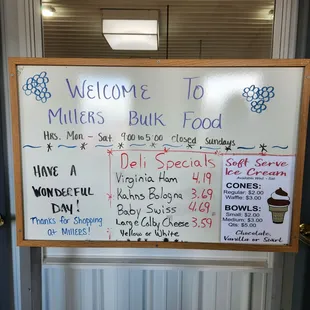 Welcome To
Millers Bulk Food
Hrs. Mon - Sat 9:00 to 5:00 closed Sundays
Have A
Wonderful
Day!
Thanks for Shopping
at Millers!
Deli Specials
Virginia Ham 4.19
Kahns Bologna 3.69
Baby Swiss 4.69
Large Colby Cheese 3.59
Yellow or White
Soft Serve
Ice Cream
CONES:
Regular: $2.00
Waffle: $3.00
BOWLS:
Small: $2.00
Medium: $3.00
Qts. $5.00
Chocolate,
Vanilla or Swirl